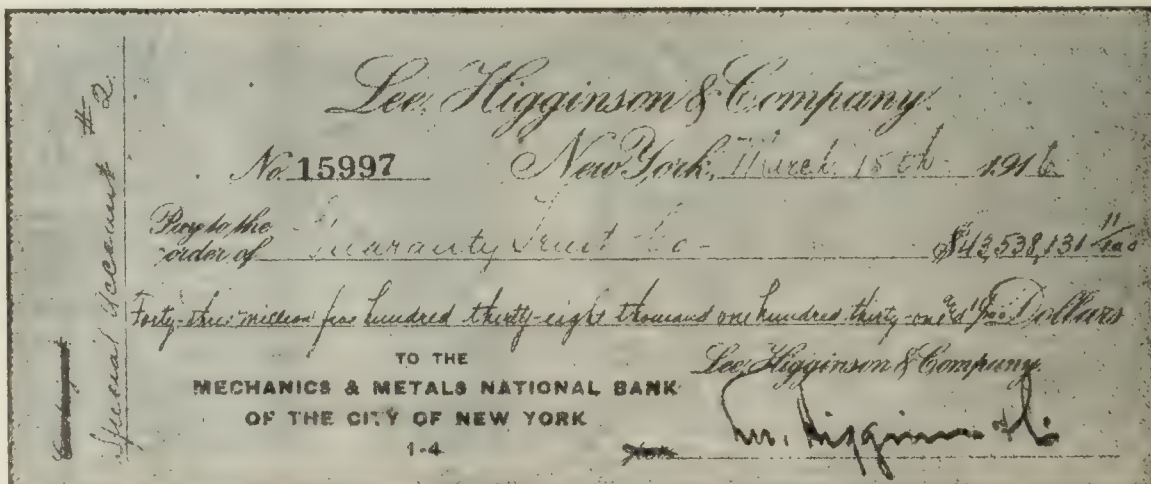 Special Account #2.
Lee, Higginson & Company.
No. 15997 New York, March 15th 1916
Pay to the order of Guaranty Trust Co - $43,538,131 11/100
Forty-three million five hundred thirty-eight thousand one hundred thirty-one & 11/100 Dollars
TO THE
MECHANICS & METALS NATIONAL BANK
OF THE CITY OF NEW YORK
1-4
Lee, Higginson & Company.
Lee, Higginson & Co